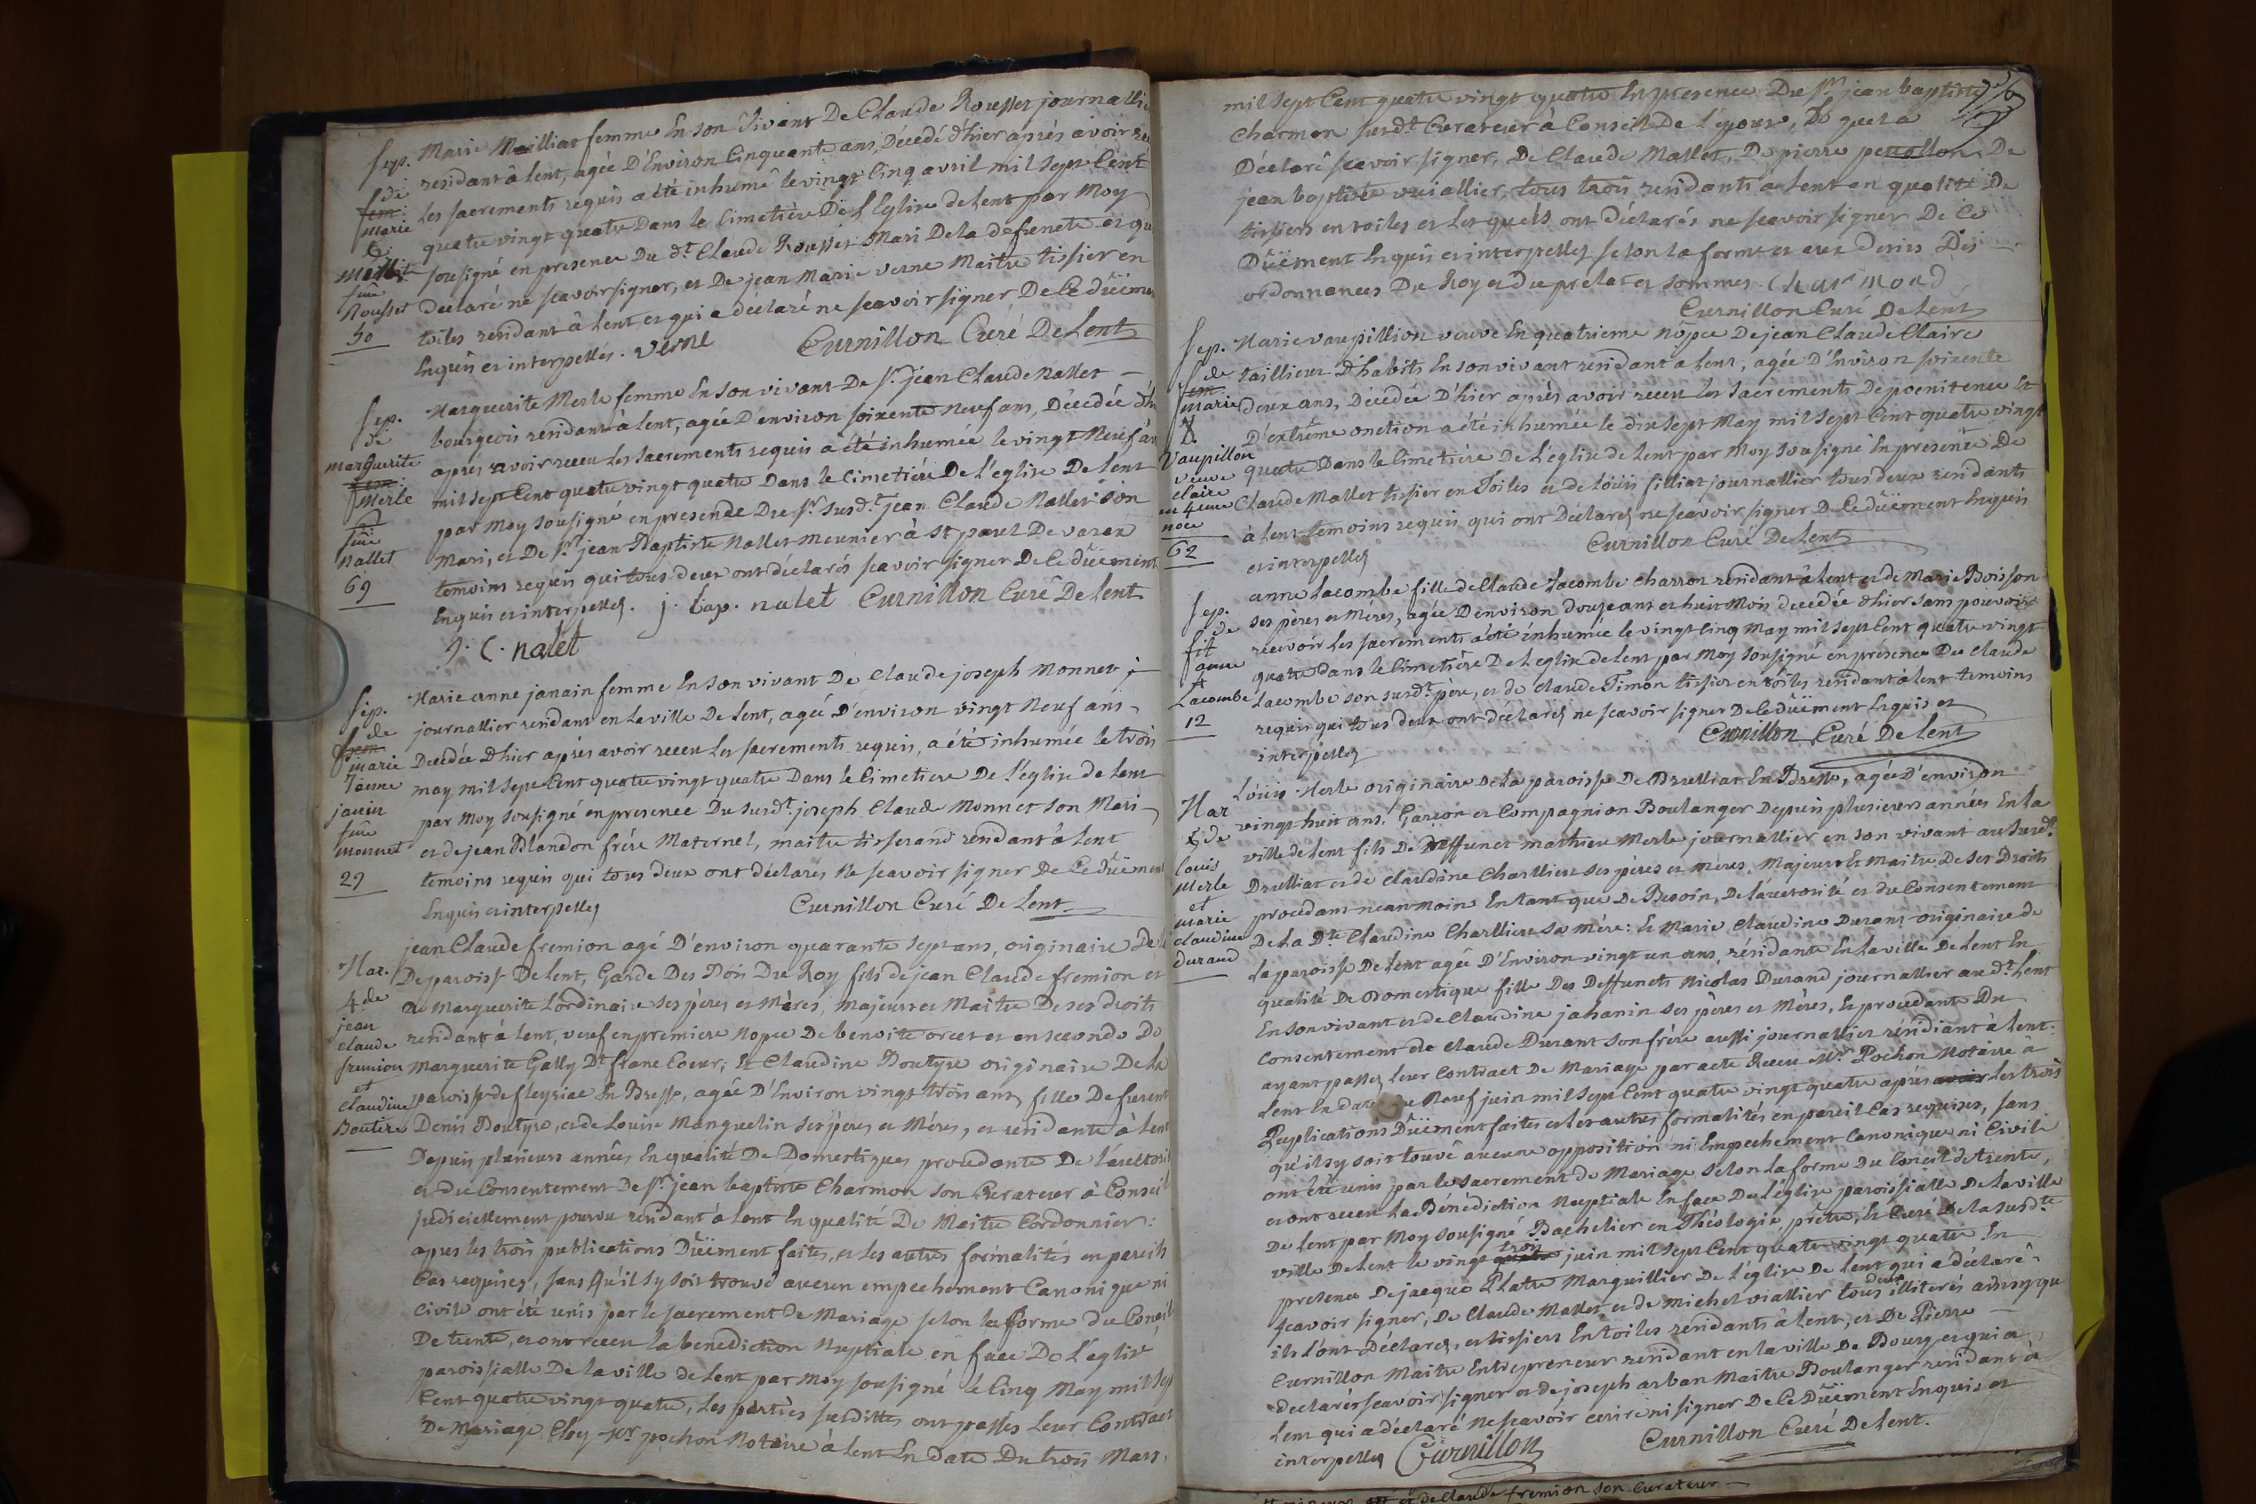 Sep.
de
fem:
marie
C.
fuie
Rousset
50
Marie Mailliat femme En son Vivant De Claude Rousset journallie
residant à lent, agée D'Environ Cinquante ans, Décedé d'hier après avoir
les sacrements requis a été inhumé le vingt Cinq avril mil sept Cent
quatre vingt quatre Dans le Cimetière De l'Eglise de lent par Moy
sousigné en presence Du dt. Claude Rousset Mari De la defunete et qu
declaré ne scavoir signer, et De jean Marie verne Maitre tissier en
toiles residant à lent et qui a déclaré ne scavoir signer De Ce düeme
Enquis et interpellés. verne Curnillon Curé De Lent
Sep.
de
marguerite
fem:
Merle
fuie
Nallet
69
Marguerite Merle femme En son vivant De sr. jean Claude Nallet
bourgeois residant à lent, agée D'environ soixente Neuf ans, Décedée d'h
après avoir receu les sacrements requis a été inhumée le vingt Neuf av
mil sept Cent quatre vingt quatre Dans le Cimetière De l'eglise De lent
par Moy sousigné en presence Du sr. susdt. jean Claude Nallet son
Mari, et De sr. jean Baptiste Nallet Meunier à St paul De varax
temoins requis qui tous deux ont déclarés scavoir signer De Ce düement
Enquis et interpellés. j. bap. nalet Curnillon Curé De Lent
J. C. nalet
Sep.
de
fem
marie
anne
janin
fuie
monnet
29
Marie anne janain femme En son vivant De Claude joseph Monnet
journallier residant en la ville De lent, agée D'environ vingt Neuf ans
Decedée D'hier après avoir receu les sacrements requis, a été inhumée le trois
may mil sept Cent quatre vingt quatre Dans le Cimetiere De l'église de lent
par Moy sousigné en presence Du susdt. joseph Claude Monnet son Mari
et de jean Blandon frère Maternel, maitre tisserand residant à lent
temoins requis qui tous deux ont déclarés Ne scavoir signer De Ce düement
Enquis et interpellés Curnillon Curé De Lent
Mar.
4. de
jean
claude
fremion
et
claudine
Boutire
jean Claude fremion agé D'environ quarante sept ans, originaire De
De paroisse De lent, Garde Des Bois Du Roy fils de jean Claude fremion et
de Marguerite Lordinaire ses pères et Mères, majeur et Maitre De ses droits
residant à lent, veuf en premiere Nopce De benoite orcet et en seconde De
Marguerite Gally Dt. franc Coeur; Et Claudine Boutyre originaire De la
paroisse de fleyriac En Bresse, agée D'Environ vingt trois ans, fille De funet
Denis Boutyre, et de Louise Manguelin ses pères et Mères, et residante à lent
Depuis plusieurs années En qualité De Domestique procedante De l'auctorit
et du Consentement De sr. jean baptiste Charmon son Curateur à Conseil
judiciellement pourvu residant à lent En qualité De Maitre Cordonnier:
apres les trois publications Düement faites, et les autres formalités en pareils
Cas requises, sans qu'il s'y soit trouvé aucun empechement Canonique ni
Civile ont été unis par le sacrement de Mariage selon la forme du Concil
De trente, et ont receu la benediction Nuptiale en face De l'église
paroissialle De la ville de lent par Moy sousigné le Cinq May mil sep
Cent quatre vingt quatre, les parties susdittes ont passés leur Contract
De Mariage Chez Mr. pochon Notaire à lent En Date Du trois Mars.
mil sept Cent quatre vingt quatre En presence Du sr. jean baptiste
Charmon susdt. Curateur à Conseil De l'epouse, le quel a
Déclaré scavoir signer, De Claude Mallet, De pierre perollon, De
jean baptiste vuiallier, tous trois residants à lent en qualité De
tissiers en toiles et les quels ont déclarés ne scavoir signer De Ce
Düement Enquis et interpellés selon la forme et aux desirs Des
ordonnances Du Roy et du prelat et sommes. Charmond
Curnillon Curé De Lent
Sep.
de
fem
marie
Vaupillon
veuve
claire
en 4eme
noce
62
Marie vaupillion veuve En quatrieme Nopce De jean Claude Claire
taillieur D'habits En son vivant residant à lent, agée D'Environ soixente
deux ans, Décedée D'hier après avoir receu les sacrements De poenitence Et
D'extrême onction a été inhumée le dix sept May mil sept Cent quatre vingt
quatre Dans le Cimetière De l'église de lent par Moy sousigné En presence De
Claude Mallet tissier en Toiles et de loüis filliat journallier tous deux residants
à lent temoins requis qui ont Déclarés ne scavoir signer De Ce düement Enquis
et interpellés Curnillon Curé De Lent
Sep.
de
fil
anne
Lacombe
12
anne lacombe fille de Claude lacombe charron residant à lent et de Marie Boisson
ses pères et Mères, agée D'environ douze ans et huit Mois decedée d'hier sans pouvoir
recevoir les sacrements a été inhumée le vingt Cinq May mil sept Cent quatre vingt
quatre dans le Cimetière De l'eglise de lent par Moy sousigné en présence Du Claude
lacombe son susdt. père, et de claude Timon tissier en toiles residant à lent temoins
requis qui tous deux ont déclarés ne scavoir signer De Ce düement Enquis et
interpellés Curnillon Curé De Lent
Mar
de
louis
Merle
et
marie
claudine
durand
Loüis Merle originaire De la paroisse De Druilliat En Bresse, agée D'environ
vingt huit ans. Garçon et Compagnion Boulanger Depuis plusieurs années En la
ville de lent fils De Deffunet mathieu Merle journallier en son vivant au susdt.
Druilliat et de claudine Charlliere ses pères et mères, Majeur Et Maitre De ses Droits
procedant neanmoins En tant que De Besoin, De l'auctorité et du Consentement
De la Dte Claudine Charlliere sa mère: Et Marie Claudine Durant originaire de
la paroisse De lent agée D'Environ vingt un ans, résidante En la ville De lent En
qualité De Domestique fille Des Deffuncts Nicolas Durand journallier au dt. lent
En son vivant et de Claudine jahanin ses pères et Mères, Et procedante Du
Consentement de Claude Durant son frère aussi journallier résidiant à lent:
ayant passés leur Contract De Mariage par acte Receu Mr. Pochon Notaire à
lent En date Neuf juin mil sept Cent quatre vingt quatre après avoir les trois
Puplications Düement faites et les autres formalités en pareil Cas requises, sans
qu'il s'y soit trouvé aucune opposition ni Empechement Canonique ni Civile
ont été unis par le sacrement de Mariage selon la forme Du Concil de trente,
et ont receu la Bénédiction Nuptiale En face De l'église paroissialle De la ville
De lent par Moy sousigné Bachelier en Théologie, prêtre, Et Curé De la susdte
ville De lent le vingt quatre trois juin mil sept Cent quatre vingt quatre En
presence De jacque Platre Marguillier De l'église De lent qui a déclaré
scavoir signer, De Claude Mallet et de michel viallier tous deux illiterés ainsy qu
ils l'ont Déclarés, et tissiers En toiles residants à lent, et De Pierre
Curnillon Maitre Entrepreneur residant en la ville De Bourg et qui a
declaré scavoir signer et de joseph arban Maitre Boulanger residant à
lent qui a déclaré Ne scavoir ecrire ni signer De Ce Düement Enquis et
interpellés Curnillon Curnillon Curé De Lent.
et de Claude fremion son Curateur